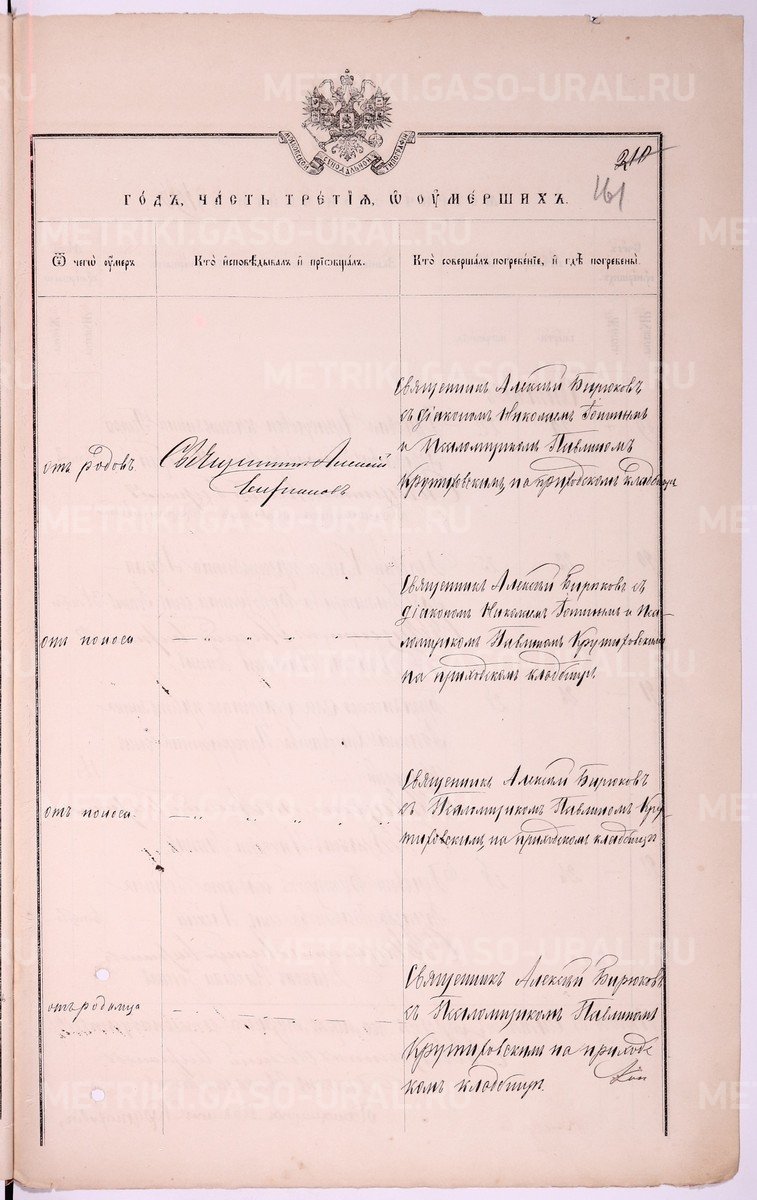 METRIKI.GASO-URAL.RU
МОСКОВСКОЙ СѴНОДАЛЬНОЙ ТИПОГРАФІИ
210
161
ГО́ДЪ, ЧА́СТЬ ТРЕ́ТІѦ, Ѿ ОУМЕ́РШИХЪ.
Ѿ чегѡ̀ оу́меръ
Кто̀ и҆сповѣ́дывалъ и҆ прїѡбща́лъ.
Кто̀ соверша́лъ погребе́нїе, и҆ гдѣ̀ погребены̀.
отъ родовъ
Священникъ Алексій
Бирюковъ
Священникъ Алексѣй Бирюковъ
съ діакономъ Николаемъ
и Псаломщикомъ Павлиномъ
Крутиховскимъ, на приходскомъ кладбищѣ
отъ поноса
Священникъ Алексѣй Бирюковъ съ
діакономъ Николаемъ и Пса-
ломщикомъ Павлиномъ Крутиховскимъ
на приходскомъ кладбищѣ
отъ поноса
Священникъ Алексѣй Бирюковъ
съ Псаломщикомъ Павлиномъ Кру-
тиховскимъ, на приходскомъ кладбищѣ
отъ родимца
Священникъ Алексѣй Бирюковъ
съ Псаломщикомъ Павлиномъ
Крутиховскимъ на приходс
комъ кладбищѣ.